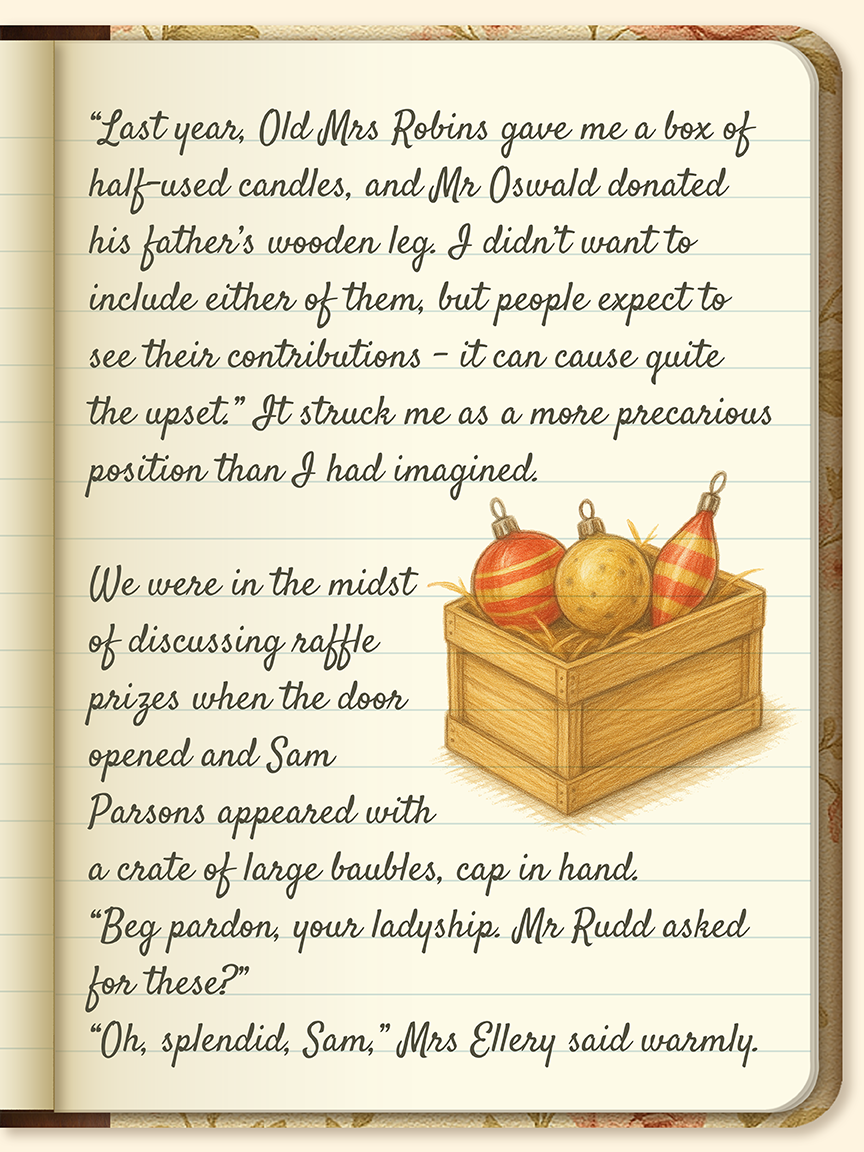 “Last year, Old Mrs Robins gave me a box of
half-used candles, and Mr Oswald donated
his father’s wooden leg. I didn’t want to
include either of them, but people expect to
see their contributions – it can cause quite
the upset.” It struck me as a more precarious
position than I had imagined.
We were in the midst
of discussing raffle
prizes when the door
opened and Sam
Parsons appeared with
a crate of large baubles, cap in hand.
“Beg pardon, your ladyship. Mr Rudd asked
for these?”
“Oh, splendid, Sam,” Mrs Ellery said warmly.